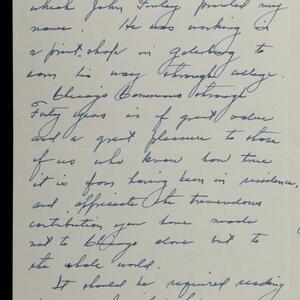 which John Finley printed my
name. He was working in
a print shop in Galesburg to
earn his way through college.
Chicago Commons through
Forty years is of great value
and a great pleasure to those
of us who know how true
it is from having been in residence,
and appreciate the tremendous
contribution you have made
not to Chicago alone but to
the whole world.
It should be required reading